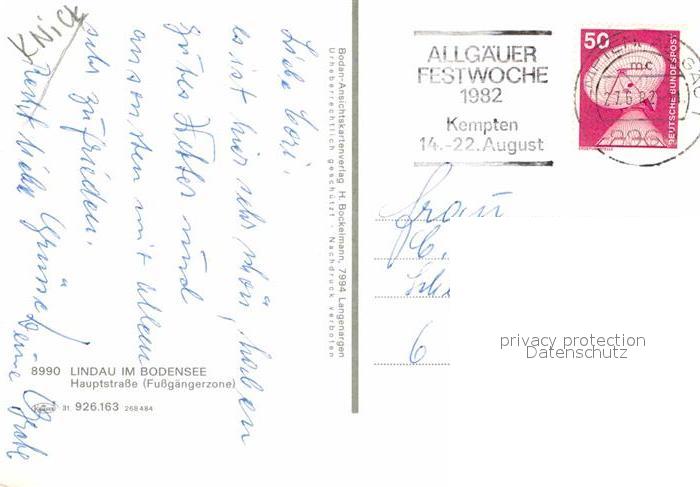 Knick
Liebe Cori.
es ist hier sehr schön, haben
gutes Wetter und
ansonsten mit allem
sehr zufrieden.
Recht liebe Grüsse! Deine
Bodan-Ansichtskartenverlag H. Bockelmann, 7994 Langenargen
Urheberrechtlich geschützt · Nachdruck verboten
8990 LINDAU IM BODENSEE
Hauptstraße (Fußgängerzone)
31 926.163 268484
ALLGÄUER
FESTWOCHE
1982
Kempten
14.-22. August
50
DEUTSCHE BUNDESPOST
mc
Frau
6
privacy protection
Datenschutz